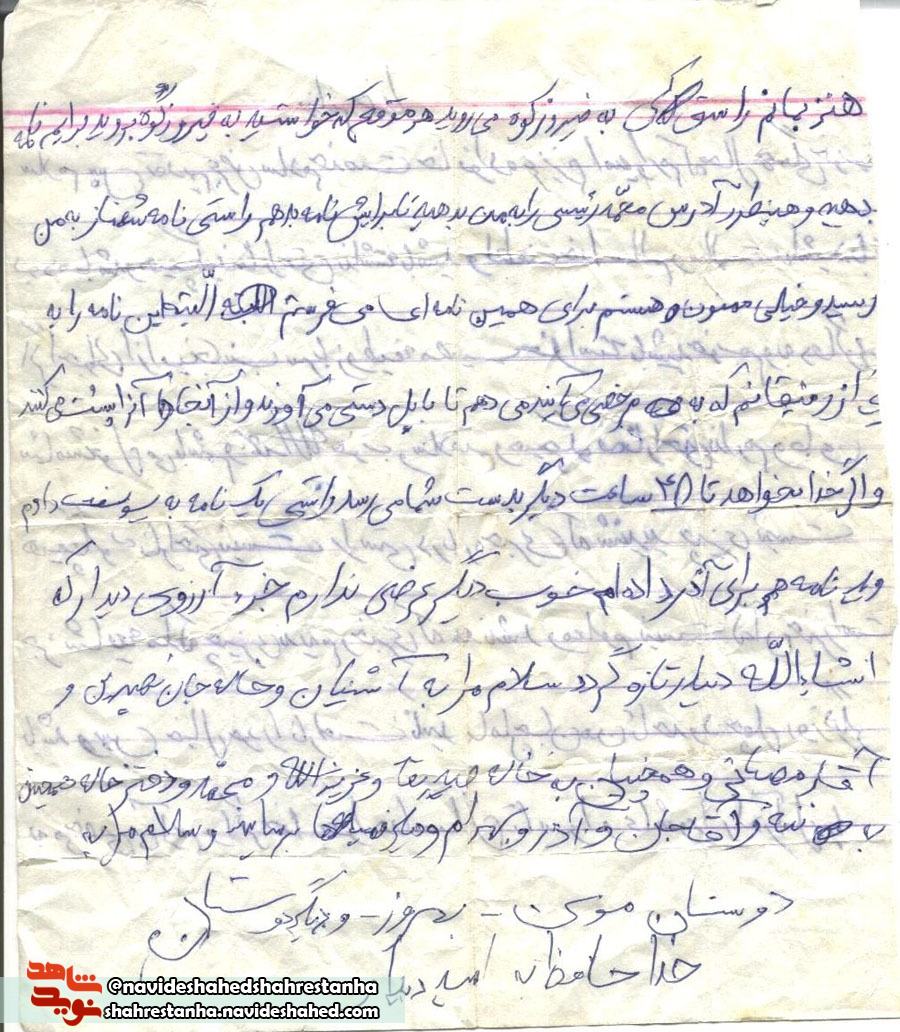 هنر بمانم راستی کی به فیروزکوه می روید هر موقعی که خواستید به فیروزکوه بروید برایم نامه
بدهید و همینطور آدرس محمد رئیسی را به من بدهید تا برایش نامه بدهم راستی نامه شهناز به من
رسید و خیلی ممنون هستم برای همین نامه ای می فرستم البته این نامه را به
از رفیقانم که به مرخصی می آیند می دهم تا بابل دستی می آورند و از آنجا آنرا پست می کنند
و اگر خدا بخواهد تا ۴۸ ساعت دیگر بدست شما می رسد راستی یک نامه به یوسف دادم
و یک نامه هم برای آذر داده ام خوب دیگر عرضی ندارم جزء آرزوی دیدار که
انشاءالله دیدار تازه گردد سلام مرا به آشنیان و خاله جان و
آقا رمضانی و همچنین به خاله و عزیزالله و محمد و دختر خاله
به ننه و آقاجان و آذر و بهرام و دیگر برسانید و سلام مرا به
دوستان موسی - بهروز - و دیگر دوستان
خداحافظ به امید دیدار
شاهد
نوید
@navideshahedshahrestanha
shahrestanha.navideshahed.com